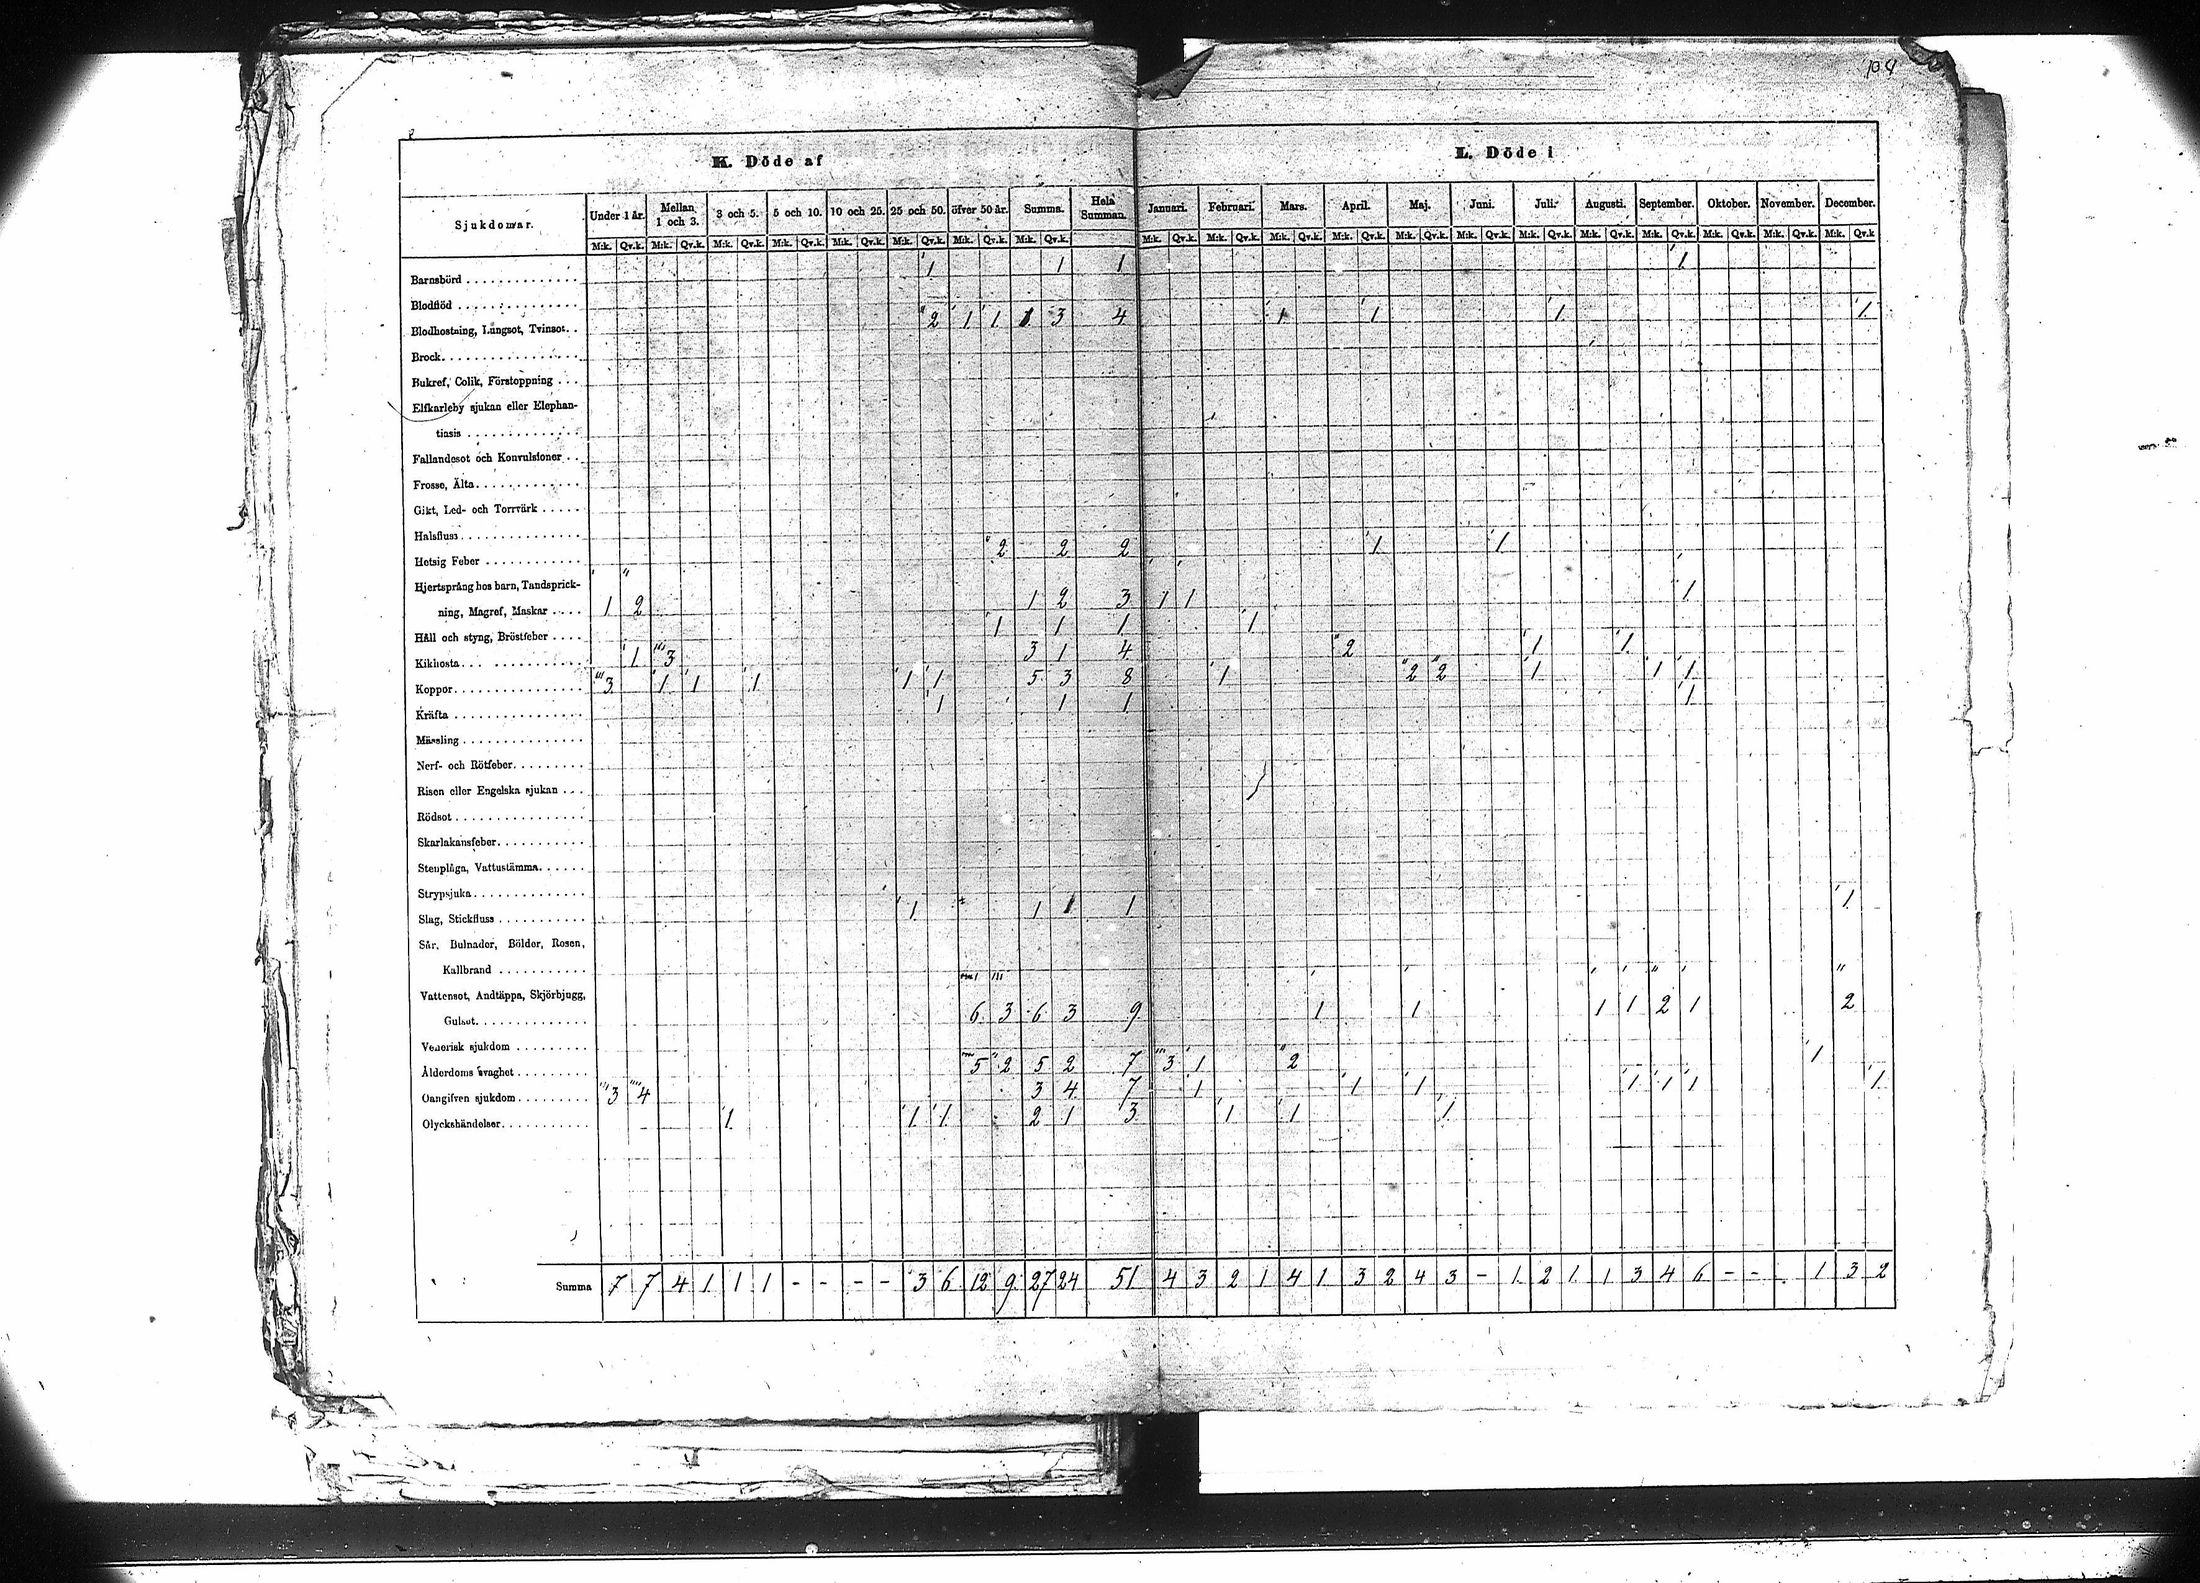 104
K. Döde af
L. Döde i
Sjukdomar. Under 1 år. Mellan 1 och 3. 3 och 5. 5 och 10. 10 och 25. 25 och 50. öfver 50 år. Summa. Hela Summan. Januari. Februari. Mars. April. Maj. Juni. Juli. Augusti. September. Oktober. November. December.
M:k. Qv.k. M:k. Qv.k. M:k. Qv.k. M:k. Qv.k. M:k. Qv.k. M:k. Qv.k. M:k. Qv.k. M:k. Qv.k. M:k. Qv.k. M:k. Qv.k. M:k. Qv.k. M:k. Qv.k. M:k. Qv.k. M:k. Qv.k. M:k. Qv.k. M:k. Qv.k. M:k. Qv.k. M:k. Qv.k. M:k. Qv.k. M:k. Qv.k
Barnsbörd 1 1 1 1
Blodflöd
Blodhostning, Lungsot, Tvinsot 2 1 1 1 3 4 1 1 1 1
Brock
Bukref, Colik, Förstoppning
Elfkarleby sjukan eller Elephan-
tiasis
Fallandesot och Konvulsioner
Frosse, Älta
Gikt, Led- och Torrvärk
Halsfluss
Hetsig Feber 2 2 2 1 1
Hjertsprång hos barn, Tandsprick-
ning, Magref, Maskar 1 2 1 2 3 1 1 1
Håll och styng, Bröstfeber 1 1 1 1
Kikhosta 1 3 3 1 4 2 1 1
Koppor 3 1 1 1 1 1 5 3 8 1 2 2 1 1 1
Kräfta 1 1 1 1
Mässling
Nerf- och Rötfeber
Risen eller Engelska sjukan
Rödsot
Skarlakansfeber
Stenplåga, Vattustämma
Strypsjuka
Slag, Stickfluss 1 1 1 1
Sår, Bulnader, Bölder, Rosen,
Kallbrand
Vattensot, Andtäppa, Skjörbjugg,
Gulsot 6 3 6 3 9 1 1 1 1 2 1 2
Venerisk sjukdom
Ålderdoms svaghet 5 2 5 2 7 3 1 2 1
Oangifven sjukdom 3 4 3 4 7 1 1 1 1 1 1 1
Olyckshändelser 1 1 1 2 1 3 1 1 1
Summa 7 7 4 1 1 1 - - - - 3 6 12 9 27 24 51 4 3 2 1 4 1 3 2 4 3 - 1 2 1 1 3 4 6 - - . 1 3 2